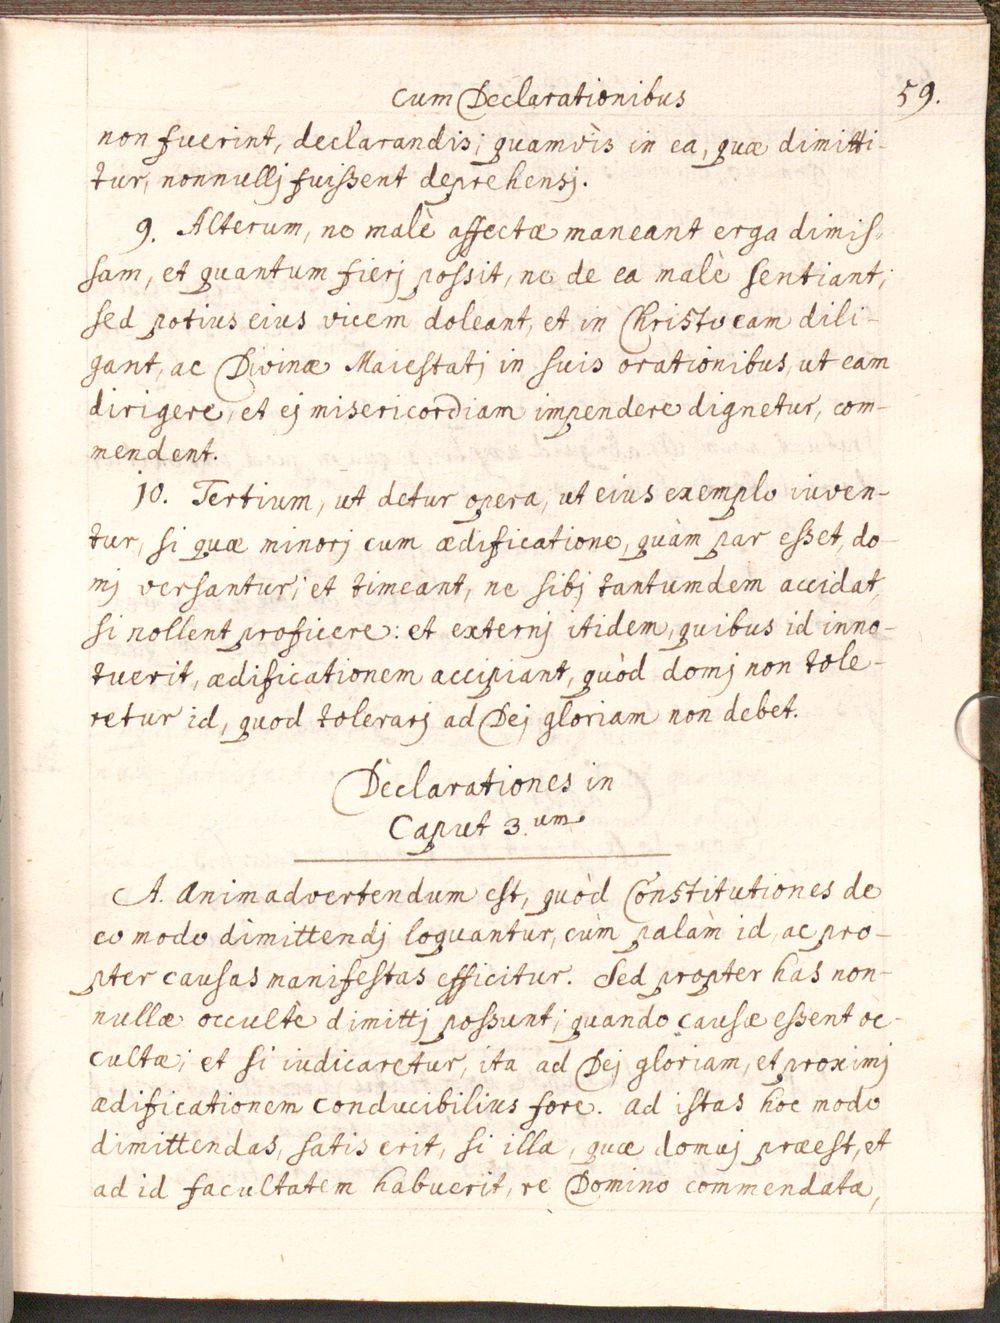 cum Declarationibus 59.
non fuerint, declarandis; quamvis in ea, quæ dimitti-
tur, nonnullj fuissent deprehensj.
9. Alterum, ne malè affectæ maneant erga dimis-
sam, et quantum fierj possit, ne de ea malè sentiant;
sed potius eius vicem doleant, et in Christo eam dili-
gant, ac Divinæ Maiestatj in suis orationibus, ut eam
dirigere, et ej misericordiam impendere dignetur, com-
mendent.
10. Tertium, ut detur opera, ut eius exemplo iuven-
tur, si quæ minorj cum ædificatione, quàm par esset, do-
mj versantur; et timeant, ne sibj tantumdem accidat,
si nollent proficere: et externj itidem, quibus id inno-
tuerit, ædificationem accipiant, quòd domj non tole-
retur id, quod tolerarj ad Dej gloriam non debet.
Declarationes in
Caput 3.um
A. Animadvertendum est, quòd Constitutiones de
eo modo dimittendj loquantur, cùm palàm id, ac pro-
pter causas manifestas efficitur. Sed propter has non-
nullæ occultè dimittj possunt; quando causæ essent oc-
cultæ; et si iudicaretur, ita ad Dej gloriam, et proximj
ædificationem conducibilius fore. ad istas hoc modo
dimittendas, satis erit, si illa, quæ domuj præest, et
ad id facultatem habuerit, re Domino commendata,